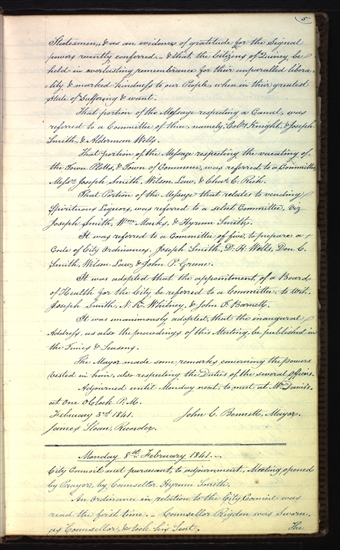 5
Statesmen, & as an evidence of gratitude for the signal
powers recently conferred – & that the Citizens of Quincy be
held in everlasting remembrance for their unparalleled libera-
lity & marked kindness to our People, when in their greatest
State of Suffering & want.
That portion of the Message respecting a Canal, was
referred to a Committee of three, namely, Knight, Joseph
Smith, & Alderman Wells.
That portion of the Message respecting the vacating of
the Town Plotts, & Town of Commerce, was referred to a Committee
Messrs Joseph Smith, Wilson Law, & Chas. C. Rich.
That Portion of the Message that relates to vending
Spirituous Liquors, was referred to a select Committee, viz
Joseph Smith, Wm. Marks, & Hyrum Smith.
It was referred to a Committee of five, to prepare a
Code of City Ordinances, Joseph Smith, D. H. Wells, Don C.
Smith, Wilson Law, & John P. Greene.
It was adopted that the appointment of a Board
of Health for the City be referred to a Committee, to wit,
Joseph Smith, N. K. Whitney, & John T. Barnett.
It was unanimously adopted, that the inaugural
Address, as also the proceedings of this Meeting, be published in
the Times & Seasons.
The Mayor made some remarks concerning the powers
vested in him, also respecting the Duties of the several Officers.
Adjourned until Monday next, to meet at Mr.
at one O'Clock P.M.
February 3rd 1841. John C. Bennett, Mayor.
James Sloan, Recorder.
Monday 8th February 1841.
City Council met pursuant to adjournment, Meeting opened
by Prayer, by Counsellor Hyrum Smith.
An Ordinance in relation to the City Council was
read the first time. – Counsellor Rigdon was Sworn,
as Counsellor, & took his Seat.
The